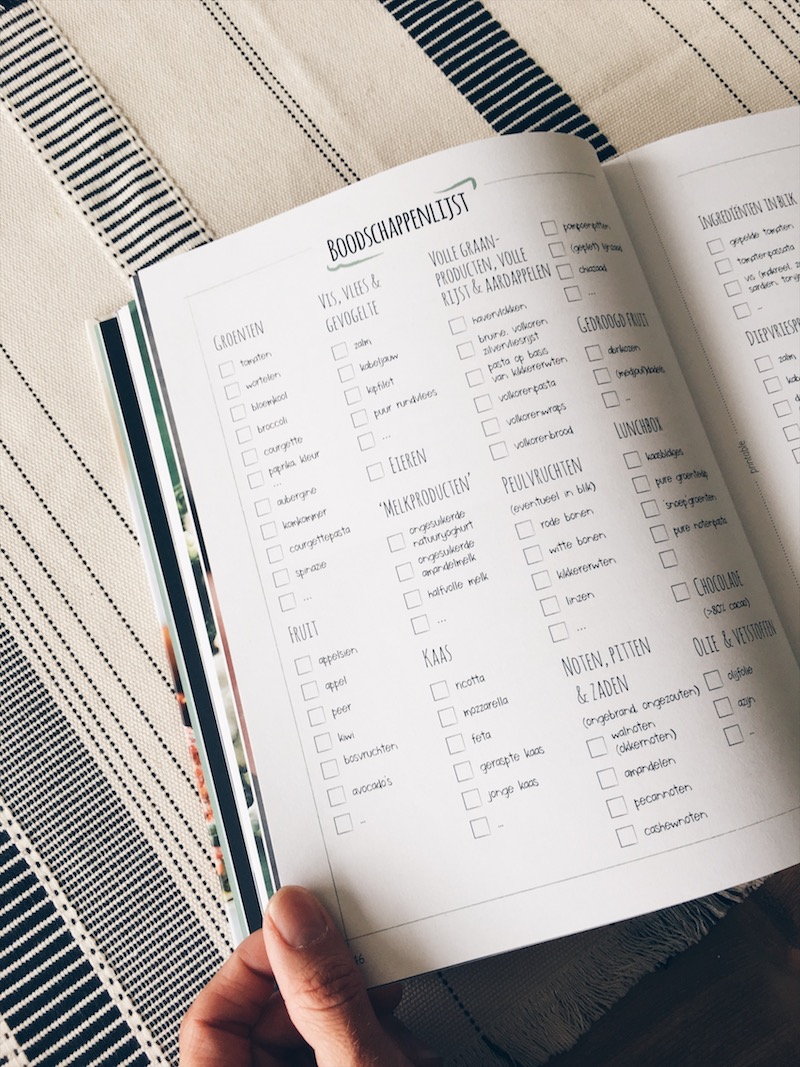 BOODSCHAPPENLIJST
GROENTEN
tomaten
wortelen
bloemkool
broccoli
courgette
paprika, kleur
...
aubergine
komkommer
courgettepasta
spinazie
...
FRUIT
appelsien
appel
peer
kiwi
bosvruchten
avocado's
...
VIS, VLEES &
GEVOGELTE
zalm
kabeljauw
kipfilet
puur rundvlees
...
EIEREN
'MELKPRODUCTEN'
ongesuikerde
natuuryoghurt
ongesuikerde
amandelmelk
halfvolle melk
...
KAAS
ricotta
mozzarella
feta
geraspte kaas
jonge kaas
...
VOLLE GRAAN-
PRODUCTEN, VOLLE
RIJST & AARDAPPELEN
havervlokken
bruine, volkoren
zilvervliesrijst
pasta op basis
van kikkererwten
volkorenpasta
volkorenwraps
volkorenbrood
PEULVRUCHTEN
(eventueel in blik)
rode bonen
witte bonen
kikkererwten
linzen
...
NOTEN, PITTEN
& ZADEN
(ongebrand, ongezouten)
walnoten
(okkernoten)
amandelen
pecannoten
cashewnoten
pompoenpitten
(geplet) lijnzaad
chiazaad
...
GEDROOGD FRUIT
abrikozen
(medjoul)dadels
...
LUNCHBOX
kaasblokjes
pure groentedip
snoepgroenten
pure notenpasta
CHOCOLADE
(>80% cacao)
OLIE & VETSTOFFEN
olijfolie
azijn
...
printable
INGREDIËNTEN IN BLIK
gepelde tomaten
tomatenpassata
vis (makreel,
...
zalm